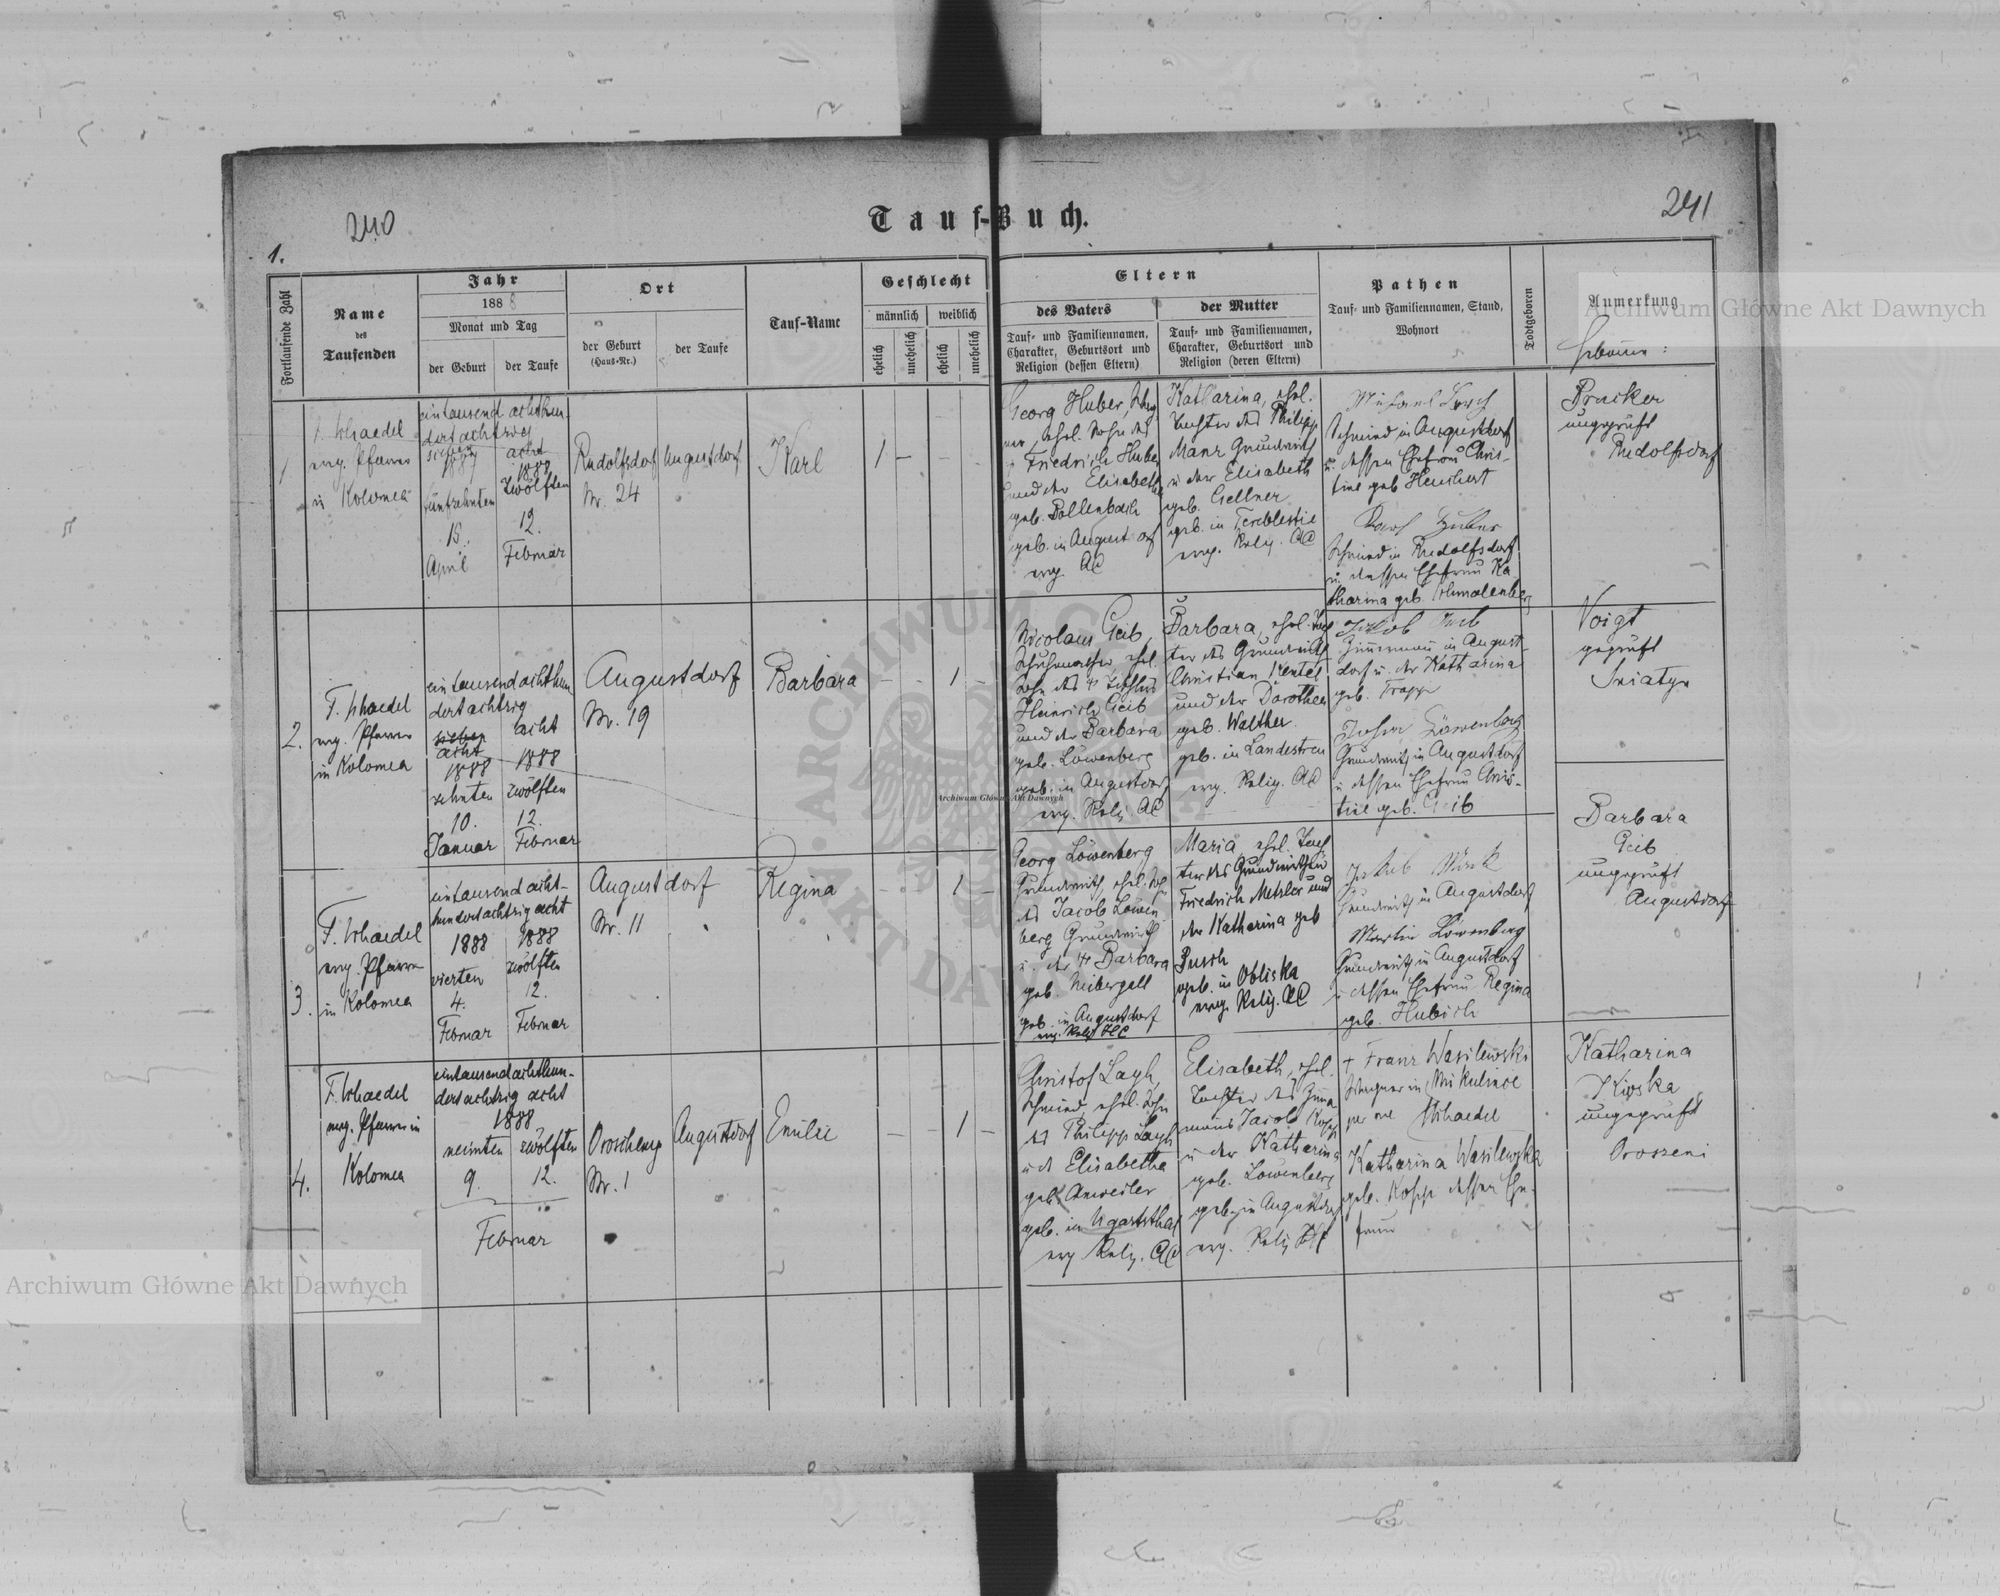 240
Tauf-Buch.
241
1.
Fortlaufende Zahl
Name
des
Taufenden
Jahr
1888
Monat und Tag
der Geburt
der Taufe
Ort
der Geburt
(Haus-Nr.)
der Taufe
Tauf-Name
Geschlecht
männlich
weiblich
ehelich
unehelich
ehelich
unehelich
Eltern
des Vaters
Tauf- und Familiennamen,
Charakter, Geburtsort und
Religion (dessen Eltern)
der Mutter
Tauf- und Familiennamen,
Charakter, Geburtsort und
Religion (deren Eltern)
Pathen
Tauf- und Familiennamen, Stand,
Wohnort
Todtgeboren
Anmerkung
1
evg. Pfarrer
in Kolomea
eintausend achthun-
dertachtzig
sieben
1887
fünfzehnten
15.
April
acht
1888
zwölften
12.
Februar
Rudolfsdorf
Nr. 24
Augustdorf
Karl
1 -
Georg Huber,
ehel. Sohn des
Friedrich Huber
und der Elisabeth
geb. Bollenbach
geb. in Augustdorf
evg. AC
Katharina, ehel.
Tochter des Philipp
Manz Grundwirth
u der Elisabeth
geb. Gellner
geb. in Tereblestie
evg. Relig. AC
Schmied in Augustdorf
u. dessen Ehefrau Chris-
tine geb
Karl Huber
Schmied in Rudolfsdorf
u. dessen Ehefrau Ka
tharina geb. Schmalenberg
ungeprüft
Rudolfsdorf
2.
evg. Pfarrer
in Kolomea
eintausend achthun
dertachtzig
sieben
acht
1888
zehnten
10.
Januar
acht
1888
zwölften
12.
Februar
Augustdorf
Nr. 19
Barbara
- - 1 -
Nicolaus Geib,
Schuhmacher, ehel.
Sohn des
Heinrich Geib
und der Barbara
geb. Löwenberg
geb. in Augustdorf
evg. Relig AC
Barbara, ehel. Toch
ter des Grundwirth
Christian Kentel
und der Dorothea
geb. Walther.
geb. in Landestreu
evg. Relig. AC
Jakob
Zimmermann in August-
dorf u. der Katharina
geb. Trapp
Löwenberg
Grundwirth in Augustdorf
u dessen Ehefrau Chris-
tine geb. Geib
Voigt
geprüft
Sniatyn
3.
evg. Pfarrer
in Kolomea
eintausend acht-
hundertachtzig acht
1888
vierten
4.
Februar
1888
zwölften
12.
Februar
Augustdorf
Nr. 11
Regina
- - 1 -
Georg Löwenberg
Grundwirth, ehel.
des Jacob Löwen
berg Grundwirth
u. der Barbara
geb. Neibergall
geb. in Augustdorf
evg. Relig HC
Maria, ehel. Toch
ter des Grundwirth in
Friedrich Metzler und
der Katharina geb
Busch
geb. in Obliska
evg. Relig. AC
Grundwirth in Augustdorf
Martin Löwenberg
Grundwirth in Augustdorf
u dessen Ehefrau Regina
geb. Hubich
Barbara
Geib
ungeprüft
Augustdorf
4.
evg. Pfarrer in
Kolomea
eintausend achthun-
dertachtzig acht
1888
neunten
9.
zwölften
12.
Februar
Nr. 1
Augustdorf
Emilie
- - 1 -
Christof Layh,
Schmied, ehel. Sohn
des Philipp Layh
u d Elisabetha
geb. Anweiler
geb. in Ugartsthal
evg Relig. AC
Elisabeth, ehel.
Tochter des Zimmer
manns Jacob Kopp
u der Katharina
geb. Löwenberg
geb. in Augustdorf
evg. Relig
+ Franz Wasilewski
Wagner in Mikulince
Katharina Wasilewska
geb. Kopp dessen Ehe-
frau
Katharina
ungeprüft
Oroszeni
Archiwum Główne Akt Dawnych
Archiwum Główne Akt Dawnych
Archiwum Główne Akt Dawnych
ARCHIWUM GŁÓWNE AKT DAWNYCH